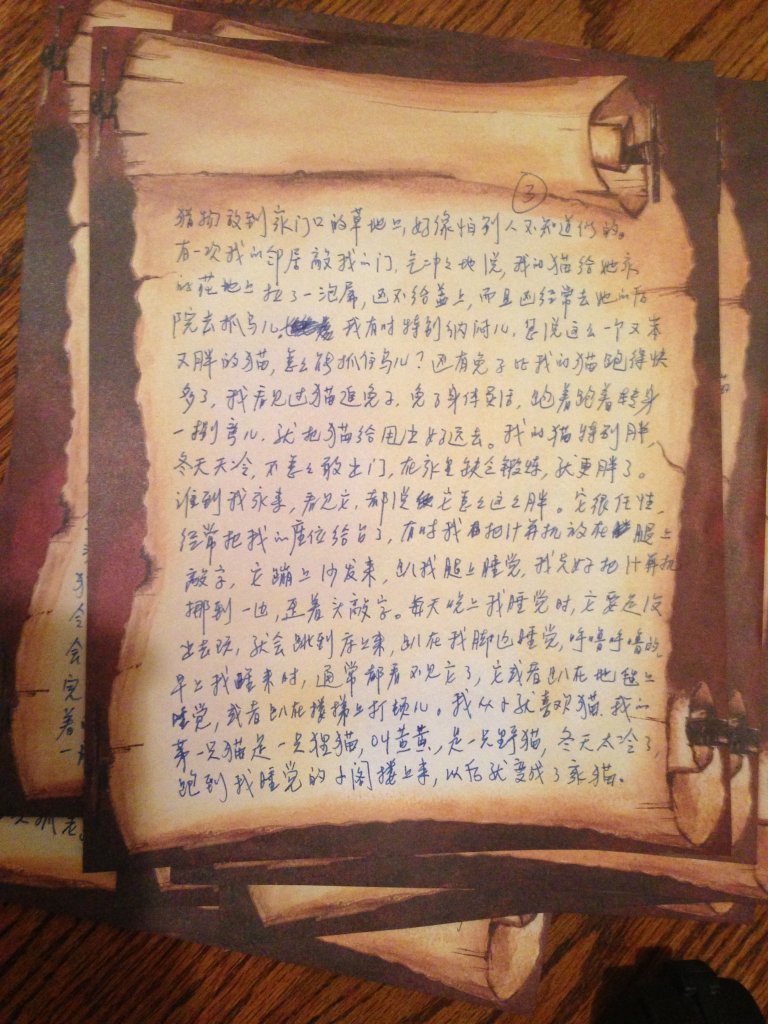 ③
猎物放到家门口的草地上,好像怕别人不知道似的。
有一次我的邻居敲我的门,气冲冲地说,我的猫给她家
的花地上拉了一泡屎,还不给盖上,而且还经常去她的后
院去抓鸟儿。我有时特别纳闷儿,甚说这么一个又笨
又胖的猫,怎么能抓住鸟儿?还有兔子比我的猫跑得快
多了,我看见过猫追兔子,兔子身体灵活,跑着跑着转身
一拐弯儿,就把猫给甩出好远去。我的猫特别胖,
冬天天冷,不怎么敢出门,在家里缺乏锻炼,就更胖了。
谁到我家来,看见它,都说它怎么这么胖。它很任性,
经常把我的座位给占了,有时我把计算机放在腿上
敲字,它蹦上沙发来,趴我腿上睡觉,我只好把计算机
挪到一边,歪着头敲字。每天晚上我睡觉时,它要是没
出去玩,就会跳到床上来,趴在我脚边睡觉,呼噜呼噜的,
早上我醒来时,通常都看不见它了,它或者趴在地毯上
睡觉,或者趴在楼梯上打顿儿。我从小就喜欢猫,我的
第一只猫是一只狸猫,叫黄黄,是一只野猫,冬天太冷了,
跑到我睡觉的小阁楼上来,以后就变成了家猫。